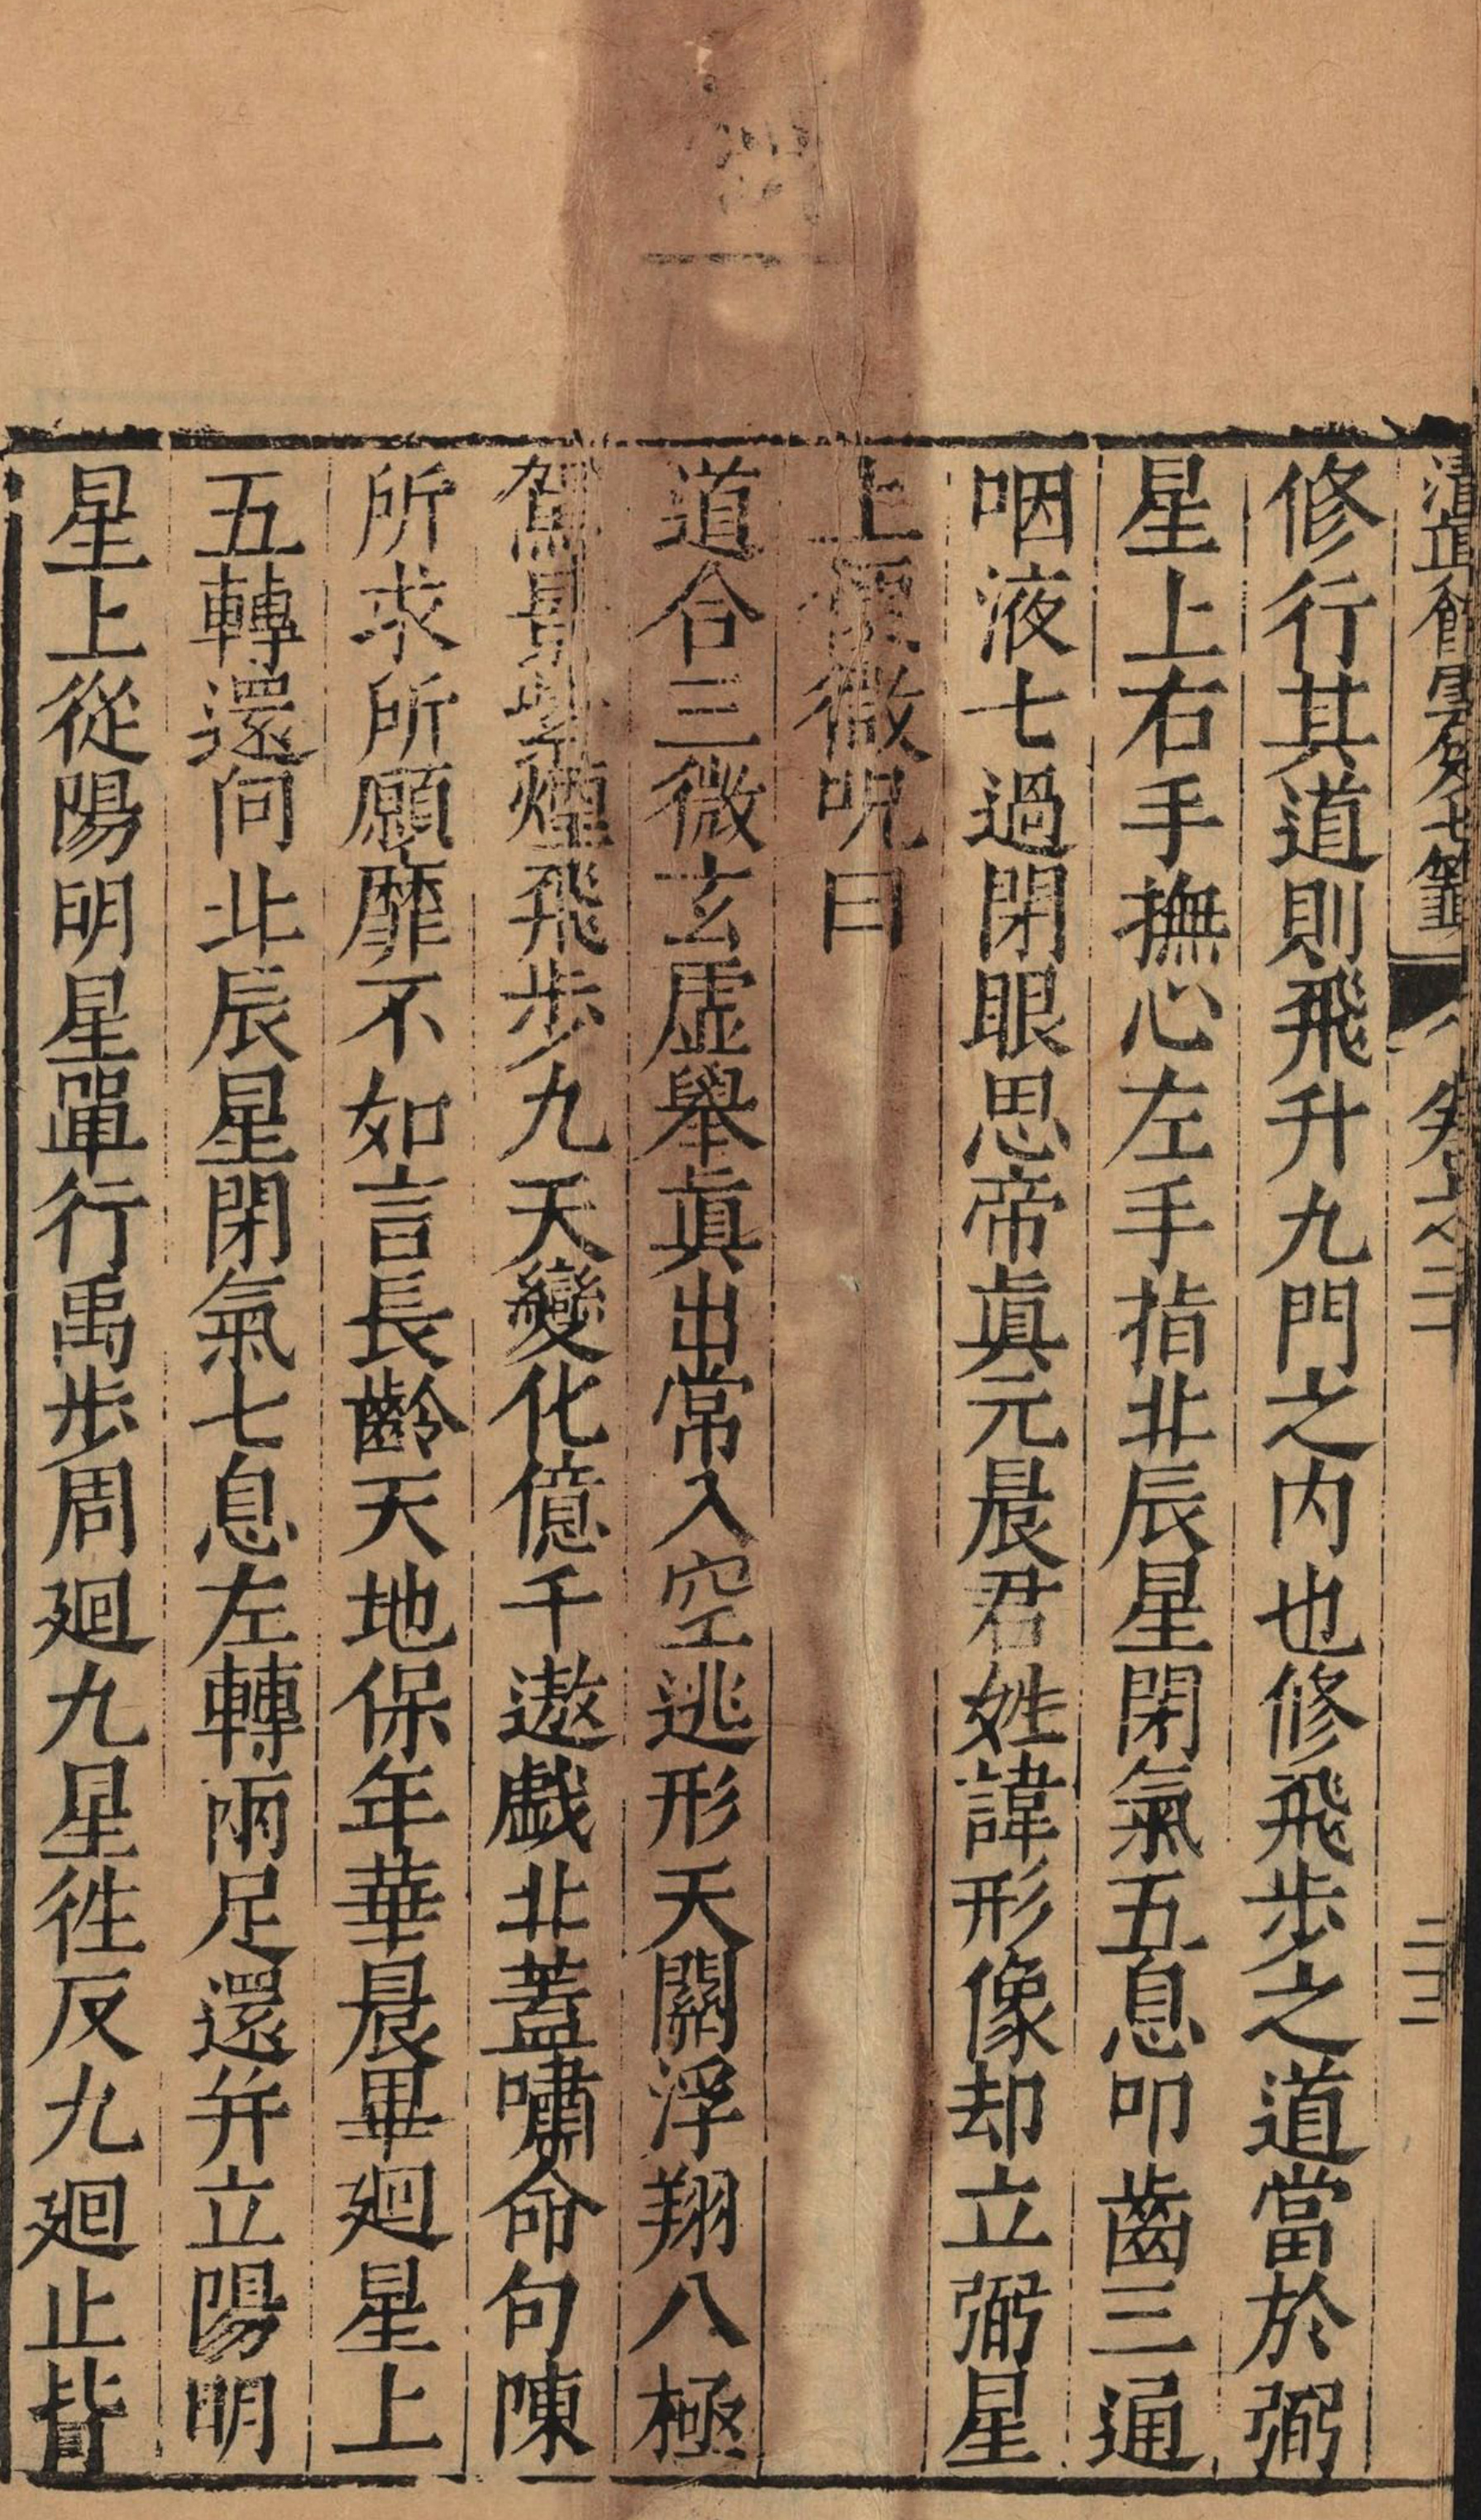 清眞館雲笈七籤 卷之二十 二三
修行其道則飛升九門之内也修飛步之道當於弼
星上右手撫心左手指北辰星閉氣五息叩齒三通
咽液七過閉眼思帝眞元晨君姓諱形像却立弼星
上便微呪曰
道合三微玄虛舉眞出常入空逃形天關浮翔八極
駕景紫煙飛步九天變化億千遨戯北蓋嘯命句陳
所求所願靡不如言長齡天地保年華晨畢廻星上
五轉還向北辰星閉氣七息左轉兩足還并立陽明
星上從陽明星單行禹步周廻九星徃反九廻止皆